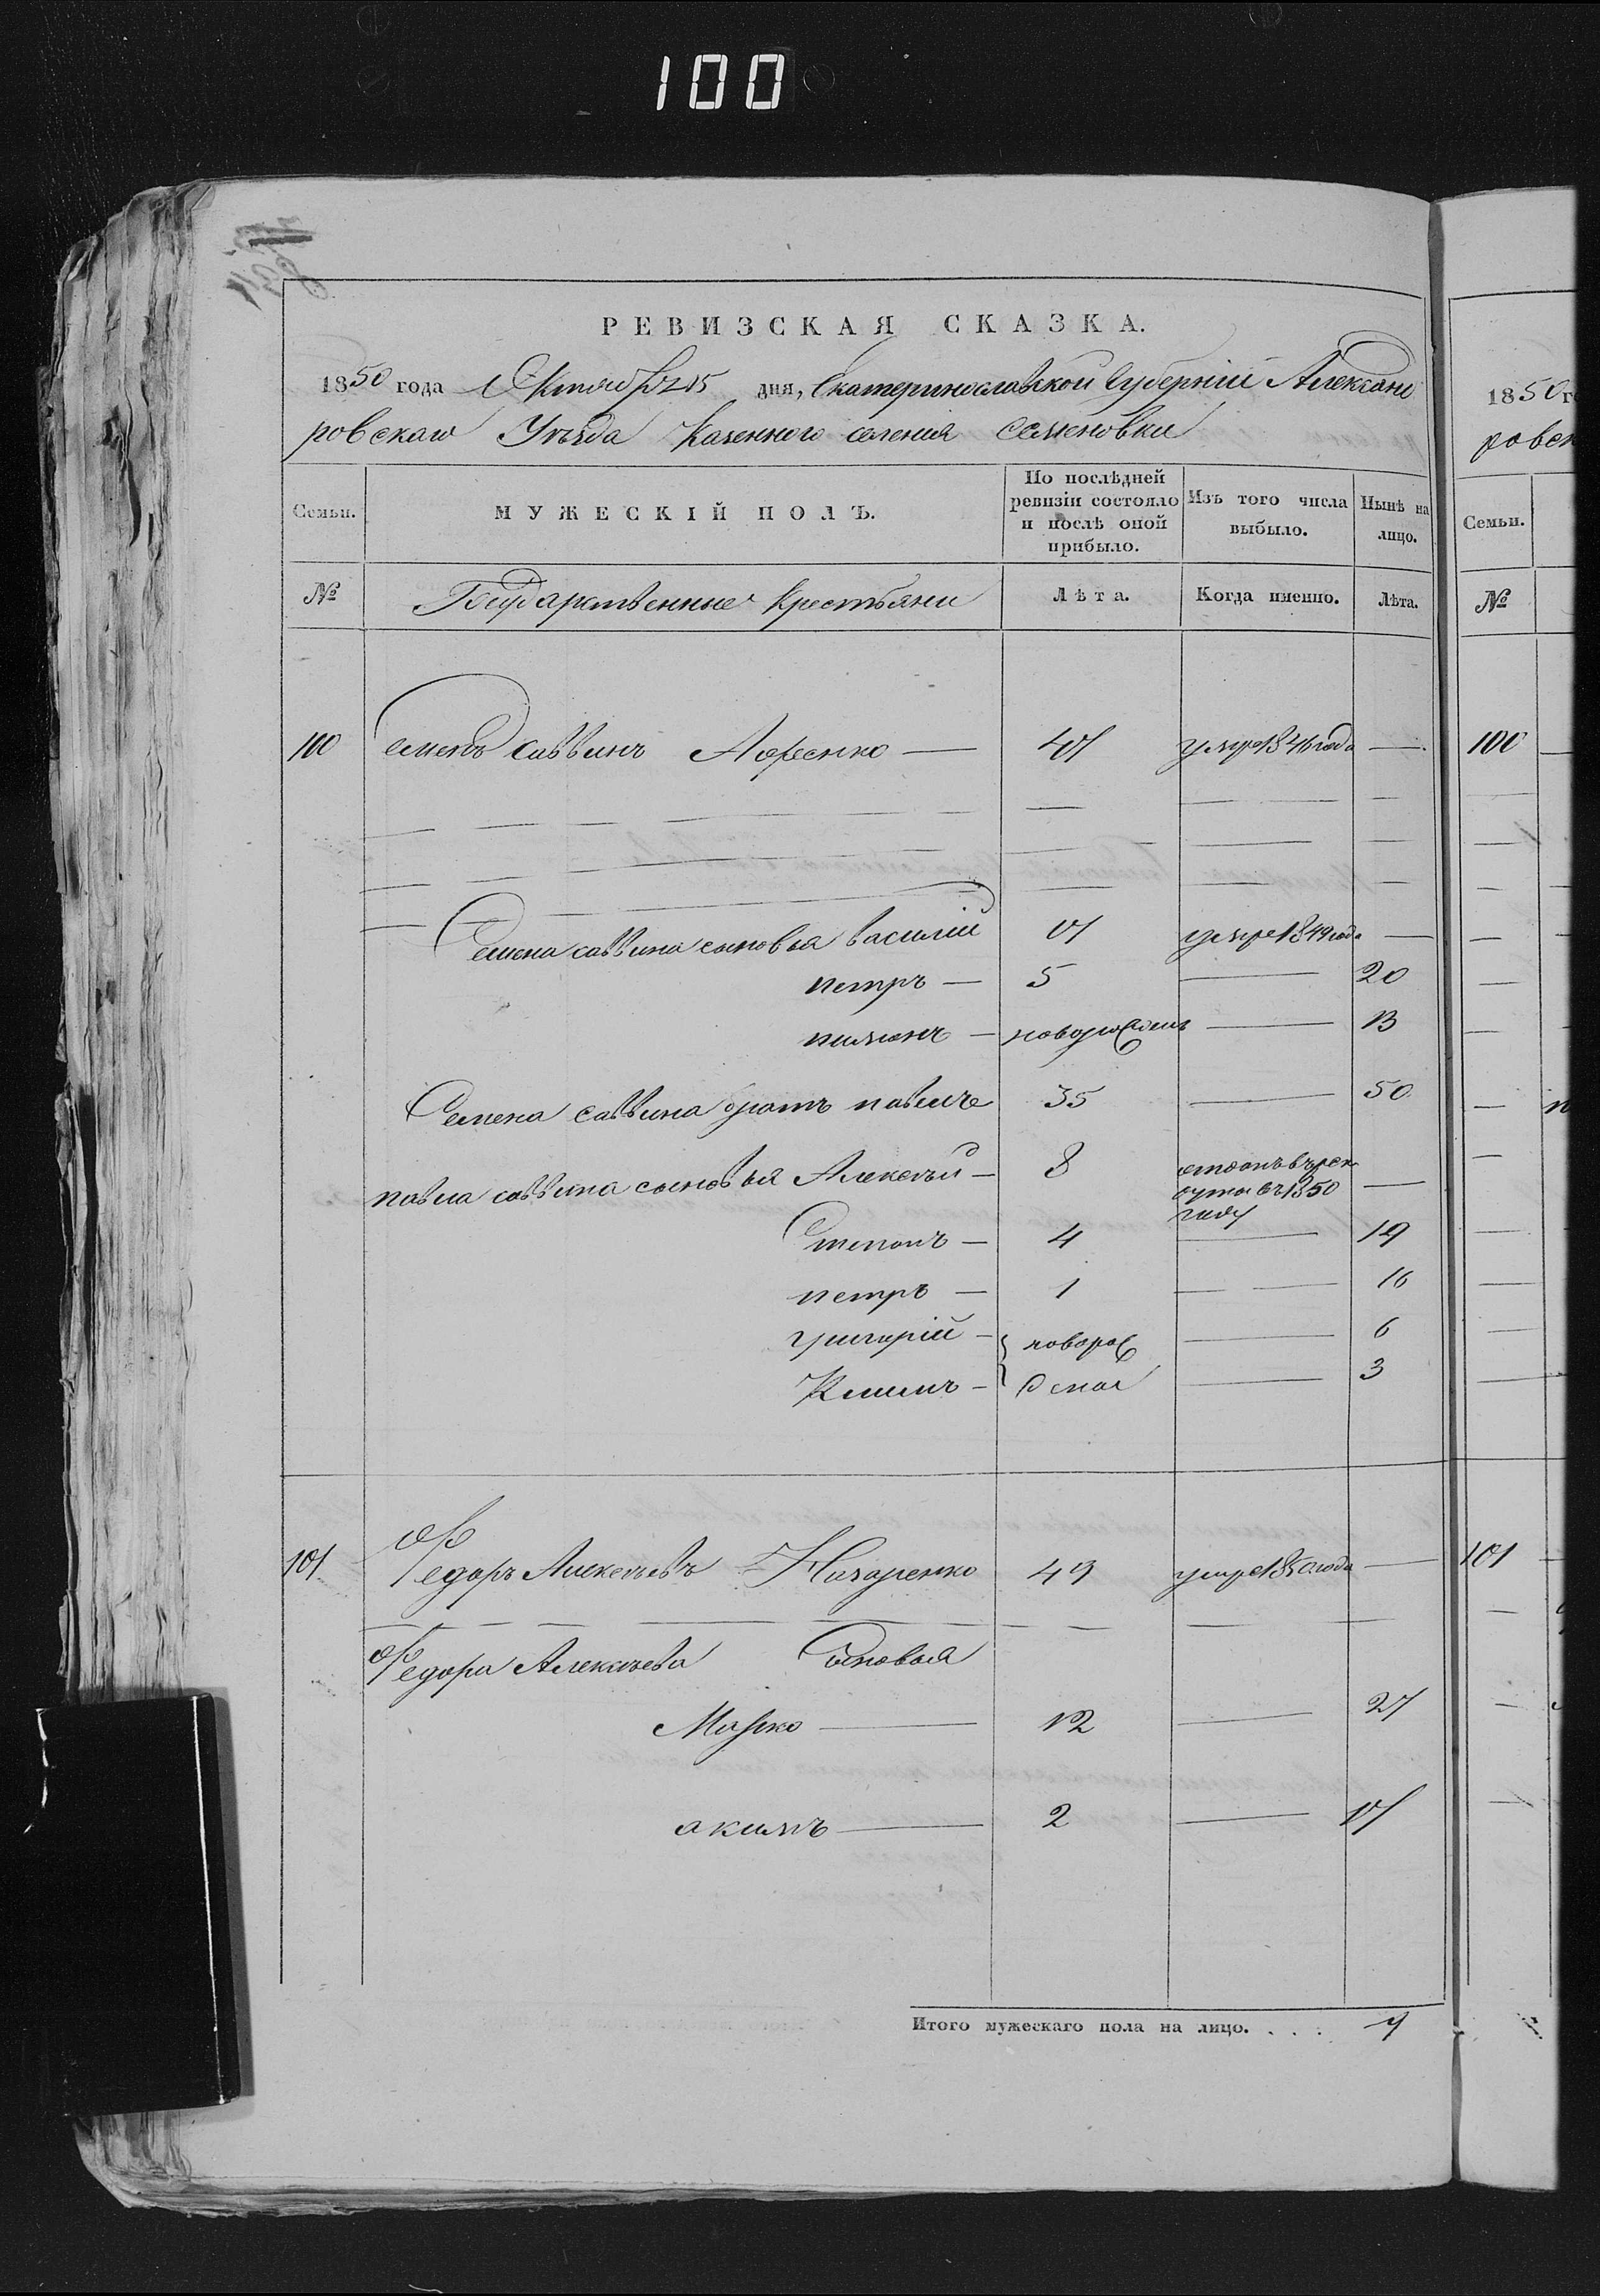 100
РЕВИЗСКАЯ СКАЗКА.
1850 года Октября 15 дня, Екатеринославской Губерніи Александ
ровскаго Уѣзда Казенного селенія Семеновки
Семьи.
МУЖЕСКІЙ ПОЛЪ.
По послѣдней ревизіи состояло и послѣ оной прибыло.
Изъ того числа выбыло.
Нынѣ на лицо.
№
Государственные крестьяни
Лѣта.
Когда именно.
Лѣта.
100 Семенъ Саввинъ 41 умре 1846 года —
Семена Саввина сыновья Василій 11 умре 1849 года —
петръ — 5 — 20
пименъ — новорожденъ — 13
Семена Саввина братъ павелъ 35 — 50
павла Саввина сыновья Алексѣй — 8 отданъ въ рек
руты въ 1850
году —
Степанъ — 4 — 19
петръ — 1 — 16
григорій — новорож — 6
Климъ — дены — 3
101 Федоръ Алексѣевъ Назаренко 49 умре 1850 года —
Федора Алексѣева Сыновья
Марко — 12 — 27
акимъ — 2 — 17
Итого мужескаго пола на лицо. . . . 9
1850 г
ровск
Семьи.
№
100
101